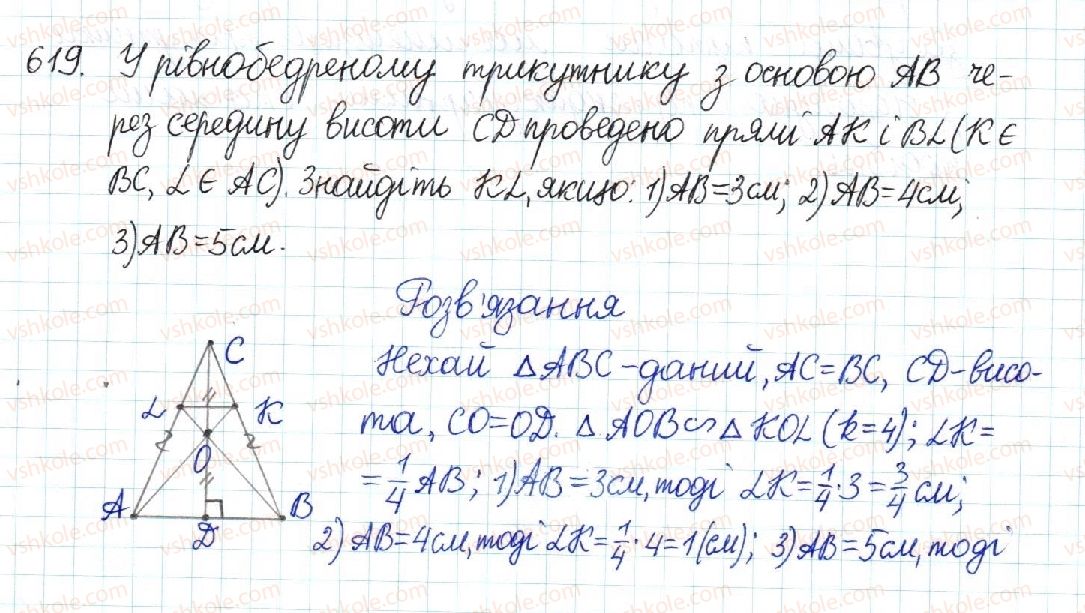 619. У рівнобедреному трикутнику з основою AB че-
рез середину висоти CD проведено прямі AK і BL (K ∈
BC, L ∈ AC). Знайдіть KL, якщо: 1) AB=3см; 2) AB=4см;
3) AB=5см.
Розв'язання
Нехай △ABC - даний, AC=BC, CD - висо-
та, CO=OD. △AOB ∽ △KOL (k=4); LK=
= 1/4 AB; 1) AB=3см, тоді LK = 1/4 · 3 = 3/4 см;
2) AB=4см, тоді LK = 1/4 · 4 = 1 (см); 3) AB=5см, тоді
C
L K
O
A B
D
vshkole.com